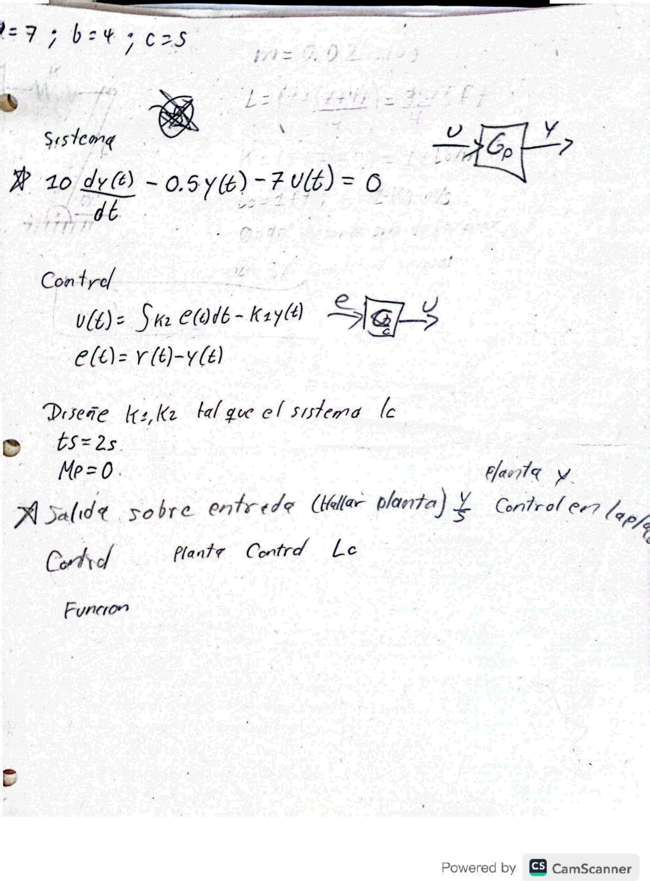 =7 ; b=4 ; c=5
Sistema
U Gp Y
10 dy(t)/dt - 0.5y(t) - 7U(t) = 0
Control
u(t) = ∫K2 e(t)dt - K1y(t)
e U
e(t) = r(t) - y(t)
Diseñe K1, K2 tal que el sistema lc
ts=2s.
Mp=0.
Planta y
Salida sobre entrada (Hallar planta) Y/5 Control en
Control Planta Control Lc
Funcion
Powered by CS CamScanner